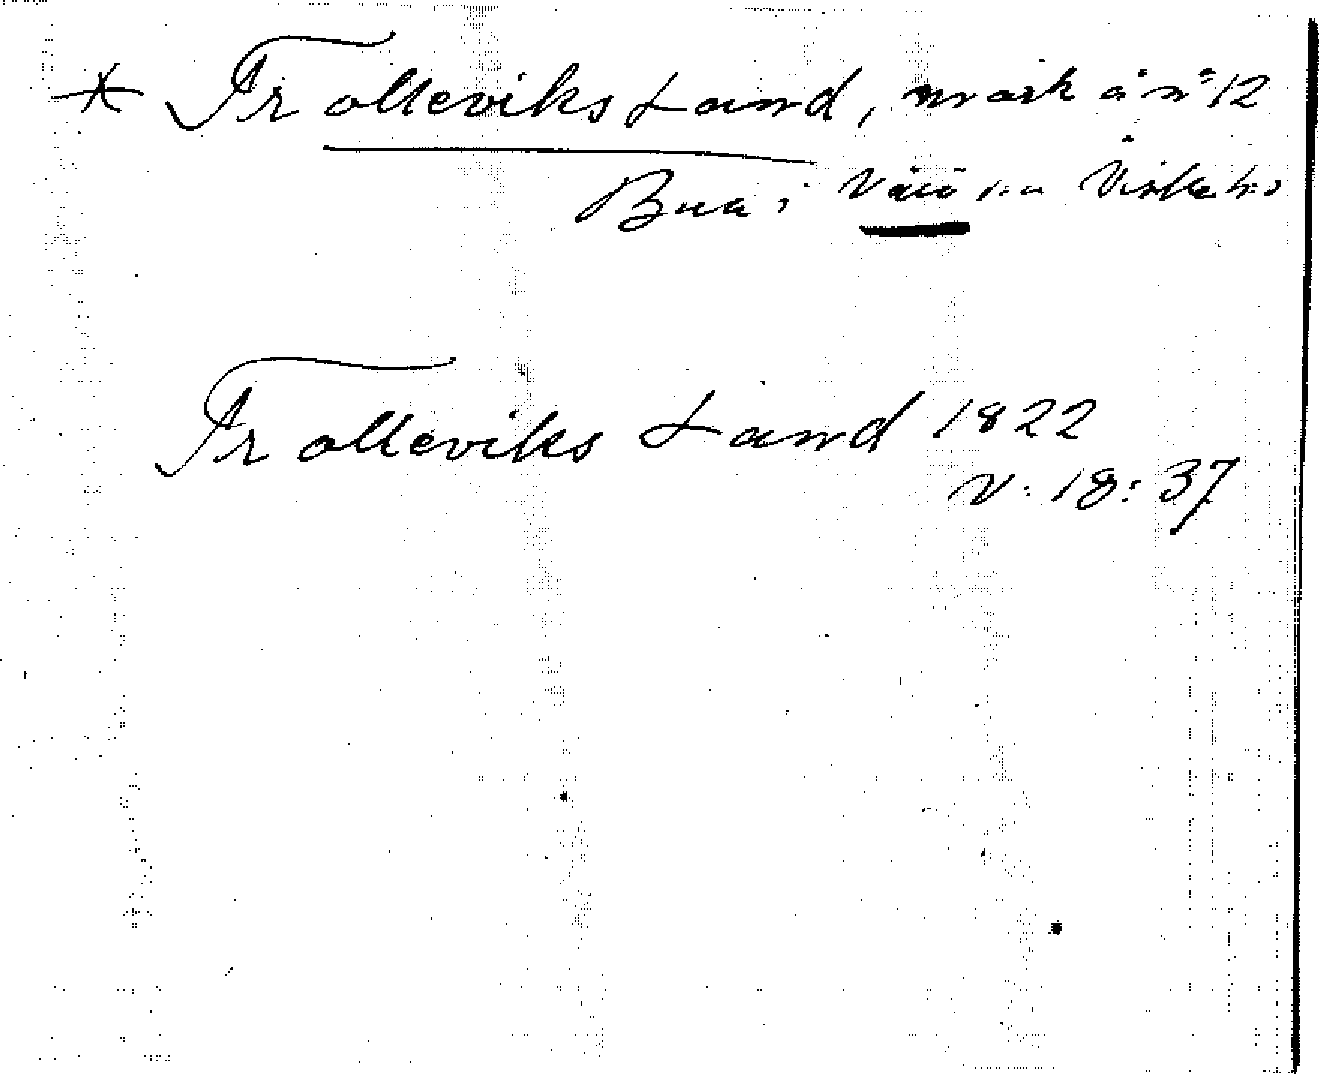 * Trolleviks Land, mark å nº 12
Bua i Värö sn Viske hd
Trolleviks Land 1822
V: 18: 37